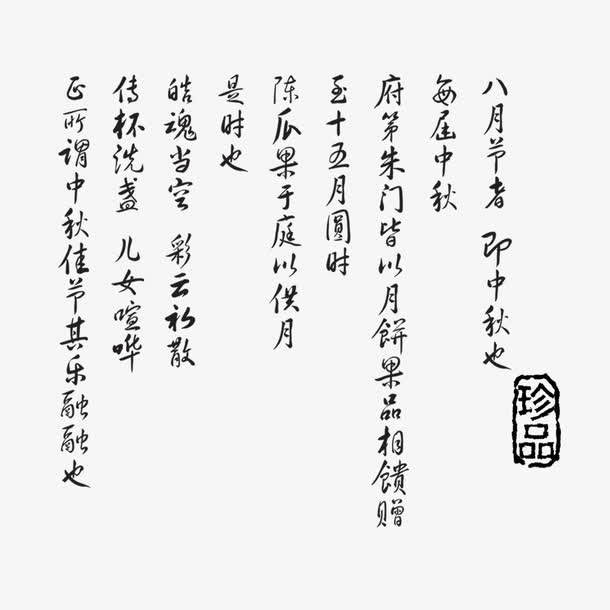 八月节者 即中秋也
每届中秋
府第朱门皆以月餅果品相饋赠
至十五月圓时
陈瓜果于庭以供月
是时也
皓魂当空 彩云初散
传杯洗盏 儿女喧哗
正所谓中秋佳节其乐融融也
珍品